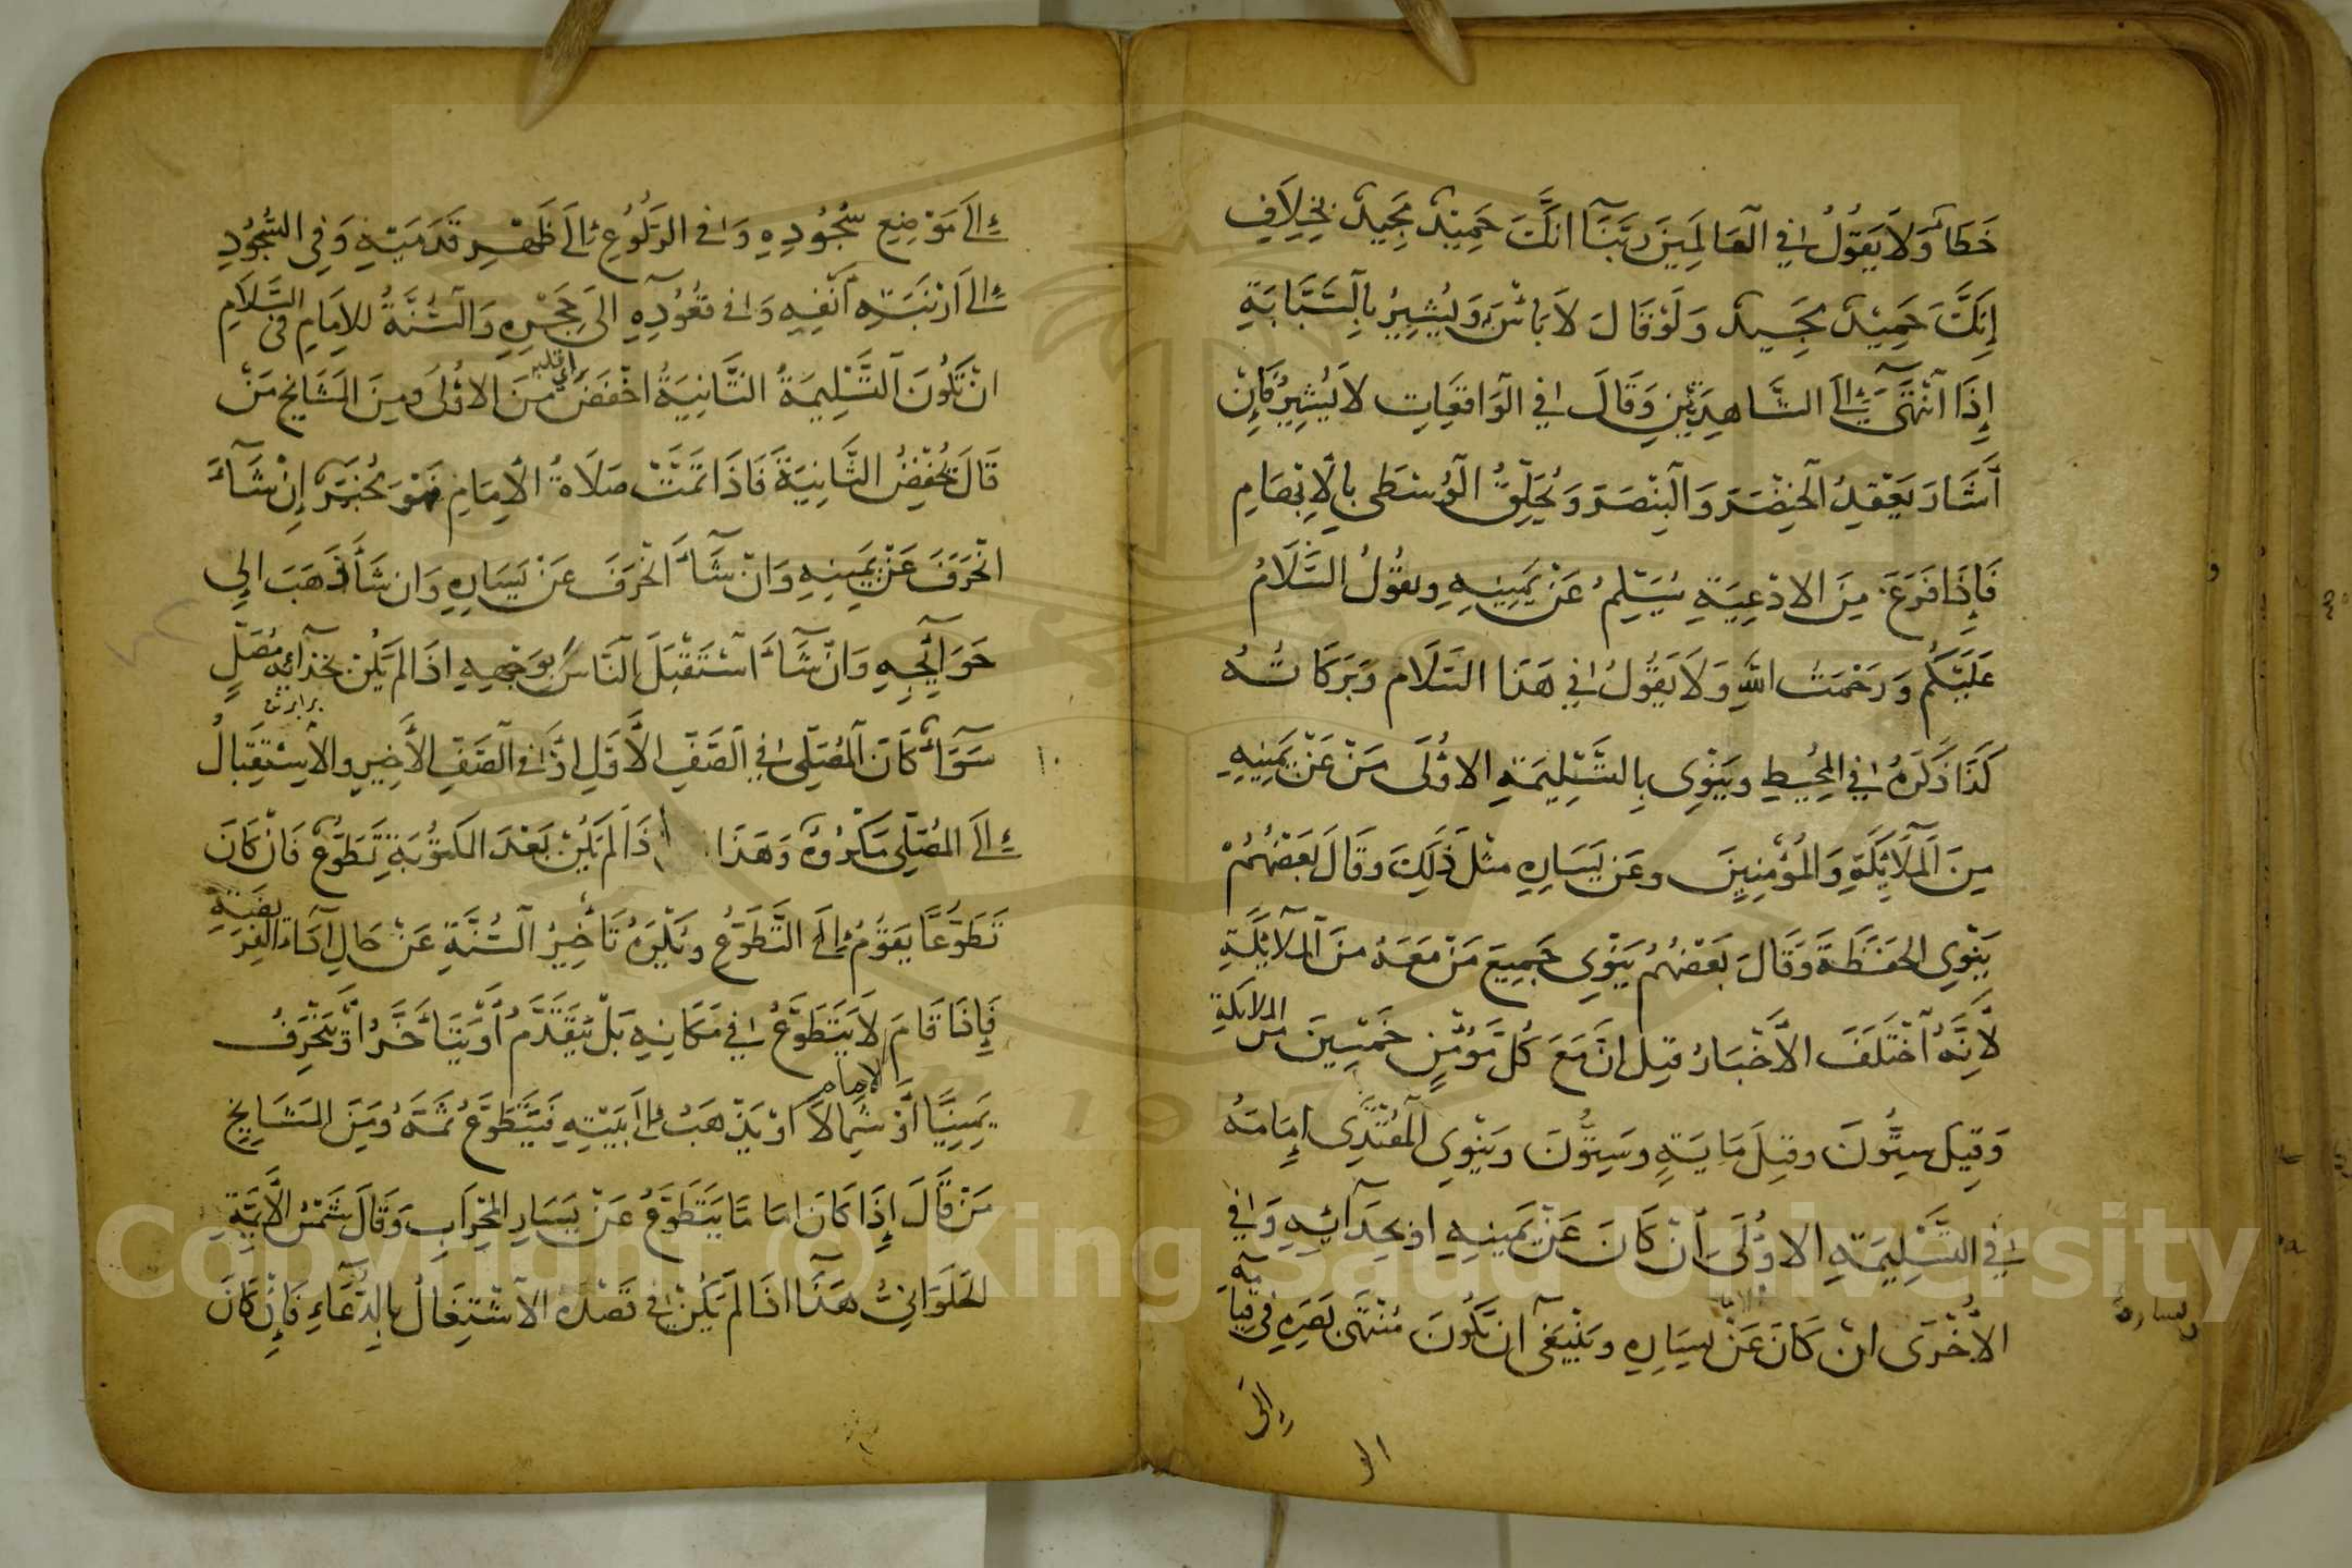 خَطَاءٌ وَلَا يَقُولُ فِي الْعَالَمِينَ رَبَّنَا اِنَّكَ حَمِيدٌ مَجِيدٌ بِخِلَافِ
إِنَّكَ حَمِيدٌ مَجِيدٌ وَلَوْ قَالَ لَا بَأْسَ وَيُشِيرُ بِالسَّبَّابَةِ
إِذَا انْتَهَى إِلَى الشَّاهِدَتَيْنِ وَقَالَ فِي الْوَاقِعَاتِ لَا يُشِيرُ فَإِنْ
أَشَارَ يَعْقِدُ الْخِنْصَرَ وَالْبِنْصَرَ وَيُحَلِّقُ الْوُسْطَى بِالْإِبْهَامِ
فَإِذَا فَرَغَ مِنَ الْادْعِيَةِ يُسَلِّمُ عَنْ يَمِينِهِ ويقُولُ السَّلَامُ
عَلَيْكُمْ وَرَحْمَتُ اللهِ وَلَا يَقُولُ فِي هَذَا السَّلَام وَبَرَكَاتُهُ
كَذَا ذَكَرَهُ فِي الْمُحِيطِ وَيَنْوِى بِالتَّسْلِيمَةِ الاُولَى مَنْ عَنْ يَمِينِهِ
مِنَ الْمَلَائِكَةِ وَالْمُؤْمِنِينَ وعَنْ يَسَارِهِ مثْلَ ذَلِكَ وقَالَ بَعْضُهُمْ
يَنْوِى الْحَفَظَةَ وَقَالَ بَعْضُهُمْ يَنْوِى جَمِيعَ مَنْ مَعَهُ مِنَ الْمَلَائِكَةِ
لِاَنَّهُ اخْتَلَفَ الْاَخْبَارُ قِيلَ اِنَّ مَعَ كُلِّ مُؤْمِنٍ خَمْسِينَ من الملائكة
وَقِيلَ سِتُّونَ وقِيلَ مَايَةٍ وسِتُّونَ ويَنْوِى الْمُقْتَدِى اِمَامَهُ
فِي التَّسْلِيمَةِ الاُولَى اَنْ كَانَ عَنْ يَمِينِهِ او بِحِذَائِهِ وَفِي
الاُخْرَى انْ كَانَ عَنْ يَسَارِهِ ويَنْبَغِى اَنْ يَكُونَ مُنْتَهَى بَصَرِهِ فِي قِيَامِهِ
يساره
اِلَى
الو
اِلَى مَوْضِعِ سُجُودِهِ وَفِي الرُّكُوعِ اِلَى ظَهْرِ قَدَمَيْهِ وَفِي السُّجُودِ
اِلَى اَرْنَبَةِ اَنْفِهِ وَفِي قُعُودِهِ اِلَى حِجْرِهِ وَالسُّنَّةُ لِلْاِمَامِ فى السَّلَامِ
اَنْ تَكُونَ التَّسْلِيمَةُ الثَّانِيَةُ اَخْفَضَ مِنَ الاُولَى ومِنَ الْمَشَايِخِ مَنْ
قَالَ يُخْفِضُ الثَّانِيَةَ فَاِذَا تَمَّتْ صَلَاةُ الْاِمَامِ فَهُوَ مُخَيَّرٌ إِنْ شَاءَ
انْحَرَفَ عَنْ يَمِينِهِ وَانْ شَاءَ انْحَرَفَ عَنْ يَسَارِهِ وَان شَاءَ ذَهَبَ اِلَى
حَوَائِجِهِ وَانْ شَاءَ اسْتَقْبَلَ النَّاسَ بِوَجْهِهِ اِذَا لَمْ يَكُنْ بِحَذَائِهِ مُصَلٍّ
برابرنه
سَوَاءٌ كَانَ الْمُصَلِّى فِي الصَّفِّ الْاَوَّلِ اَوْ فِي الصَّفِّ الْاَخِيرِ والْاِسْتِقْبَالُ
اِلَى الْمُصَلِّى مَكْرُوهٌ وَهَذَا اِذَا لَمْ يَكُنْ بَعْدَ الْمَكْتُوبَةِ تَطَوُّعٌ فَاِنْ كَانَ
تَطَوُّعًا يَقُومُ اِلَى التَّطَوُّعِ ويُكْرَهُ تَأْخِيرُ السُّنَّةِ عَنْ حَالِ اَدَاءِ الْفَرِيضَةِ
فَإِذَا قَامَ لَا يَتَطَوَّعُ فِي مَكَانِهِ بَلْ يَتَقَدَّمُ اَوْ يَتَأَخَّرُ اَوْ يَنْحَرِفُ
الامام
يَمِينًا اَوْ شِمَالًا اَوْ يَذْهَبُ اِلَى بَيْتِهِ فَيَتَطَوَّعُ ثَمَّهُ ومِنَ الْمَشَايِخِ
مَنْ قَالَ إِذَا كَانَ اِمَامًا يَتَطَوَّعُ عَنْ يَسَارِ الْمِحْرَابِ وَقَالَ شَمْسُ الْاَئِمَّةِ
الْحَلَوَانِيُّ هَذَا اِذَا لَمْ يَكُنْ فِي قَصْدِهِ الْاِشْتِغَالُ بِالدُّعَاءِ فَاِنْ كَانَ
Copyright © King Saud University